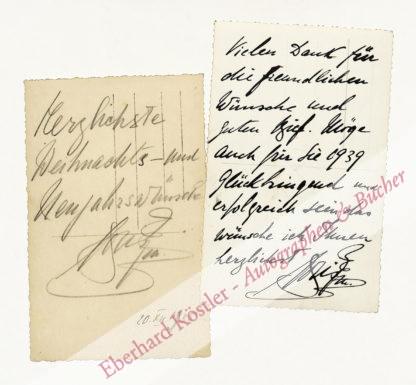 Herzlichste
Weihnachts- und
Neujahrswünsche
Vielen Dank für
die freundlichen
Wünsche und
guten Brief. Möge
auch für Sie 1939
Glückbringend und
erfolgreich sein, das
wünsche ich Ihnen
herzlichst
Eberhard Köstler - Autographen & Bücher